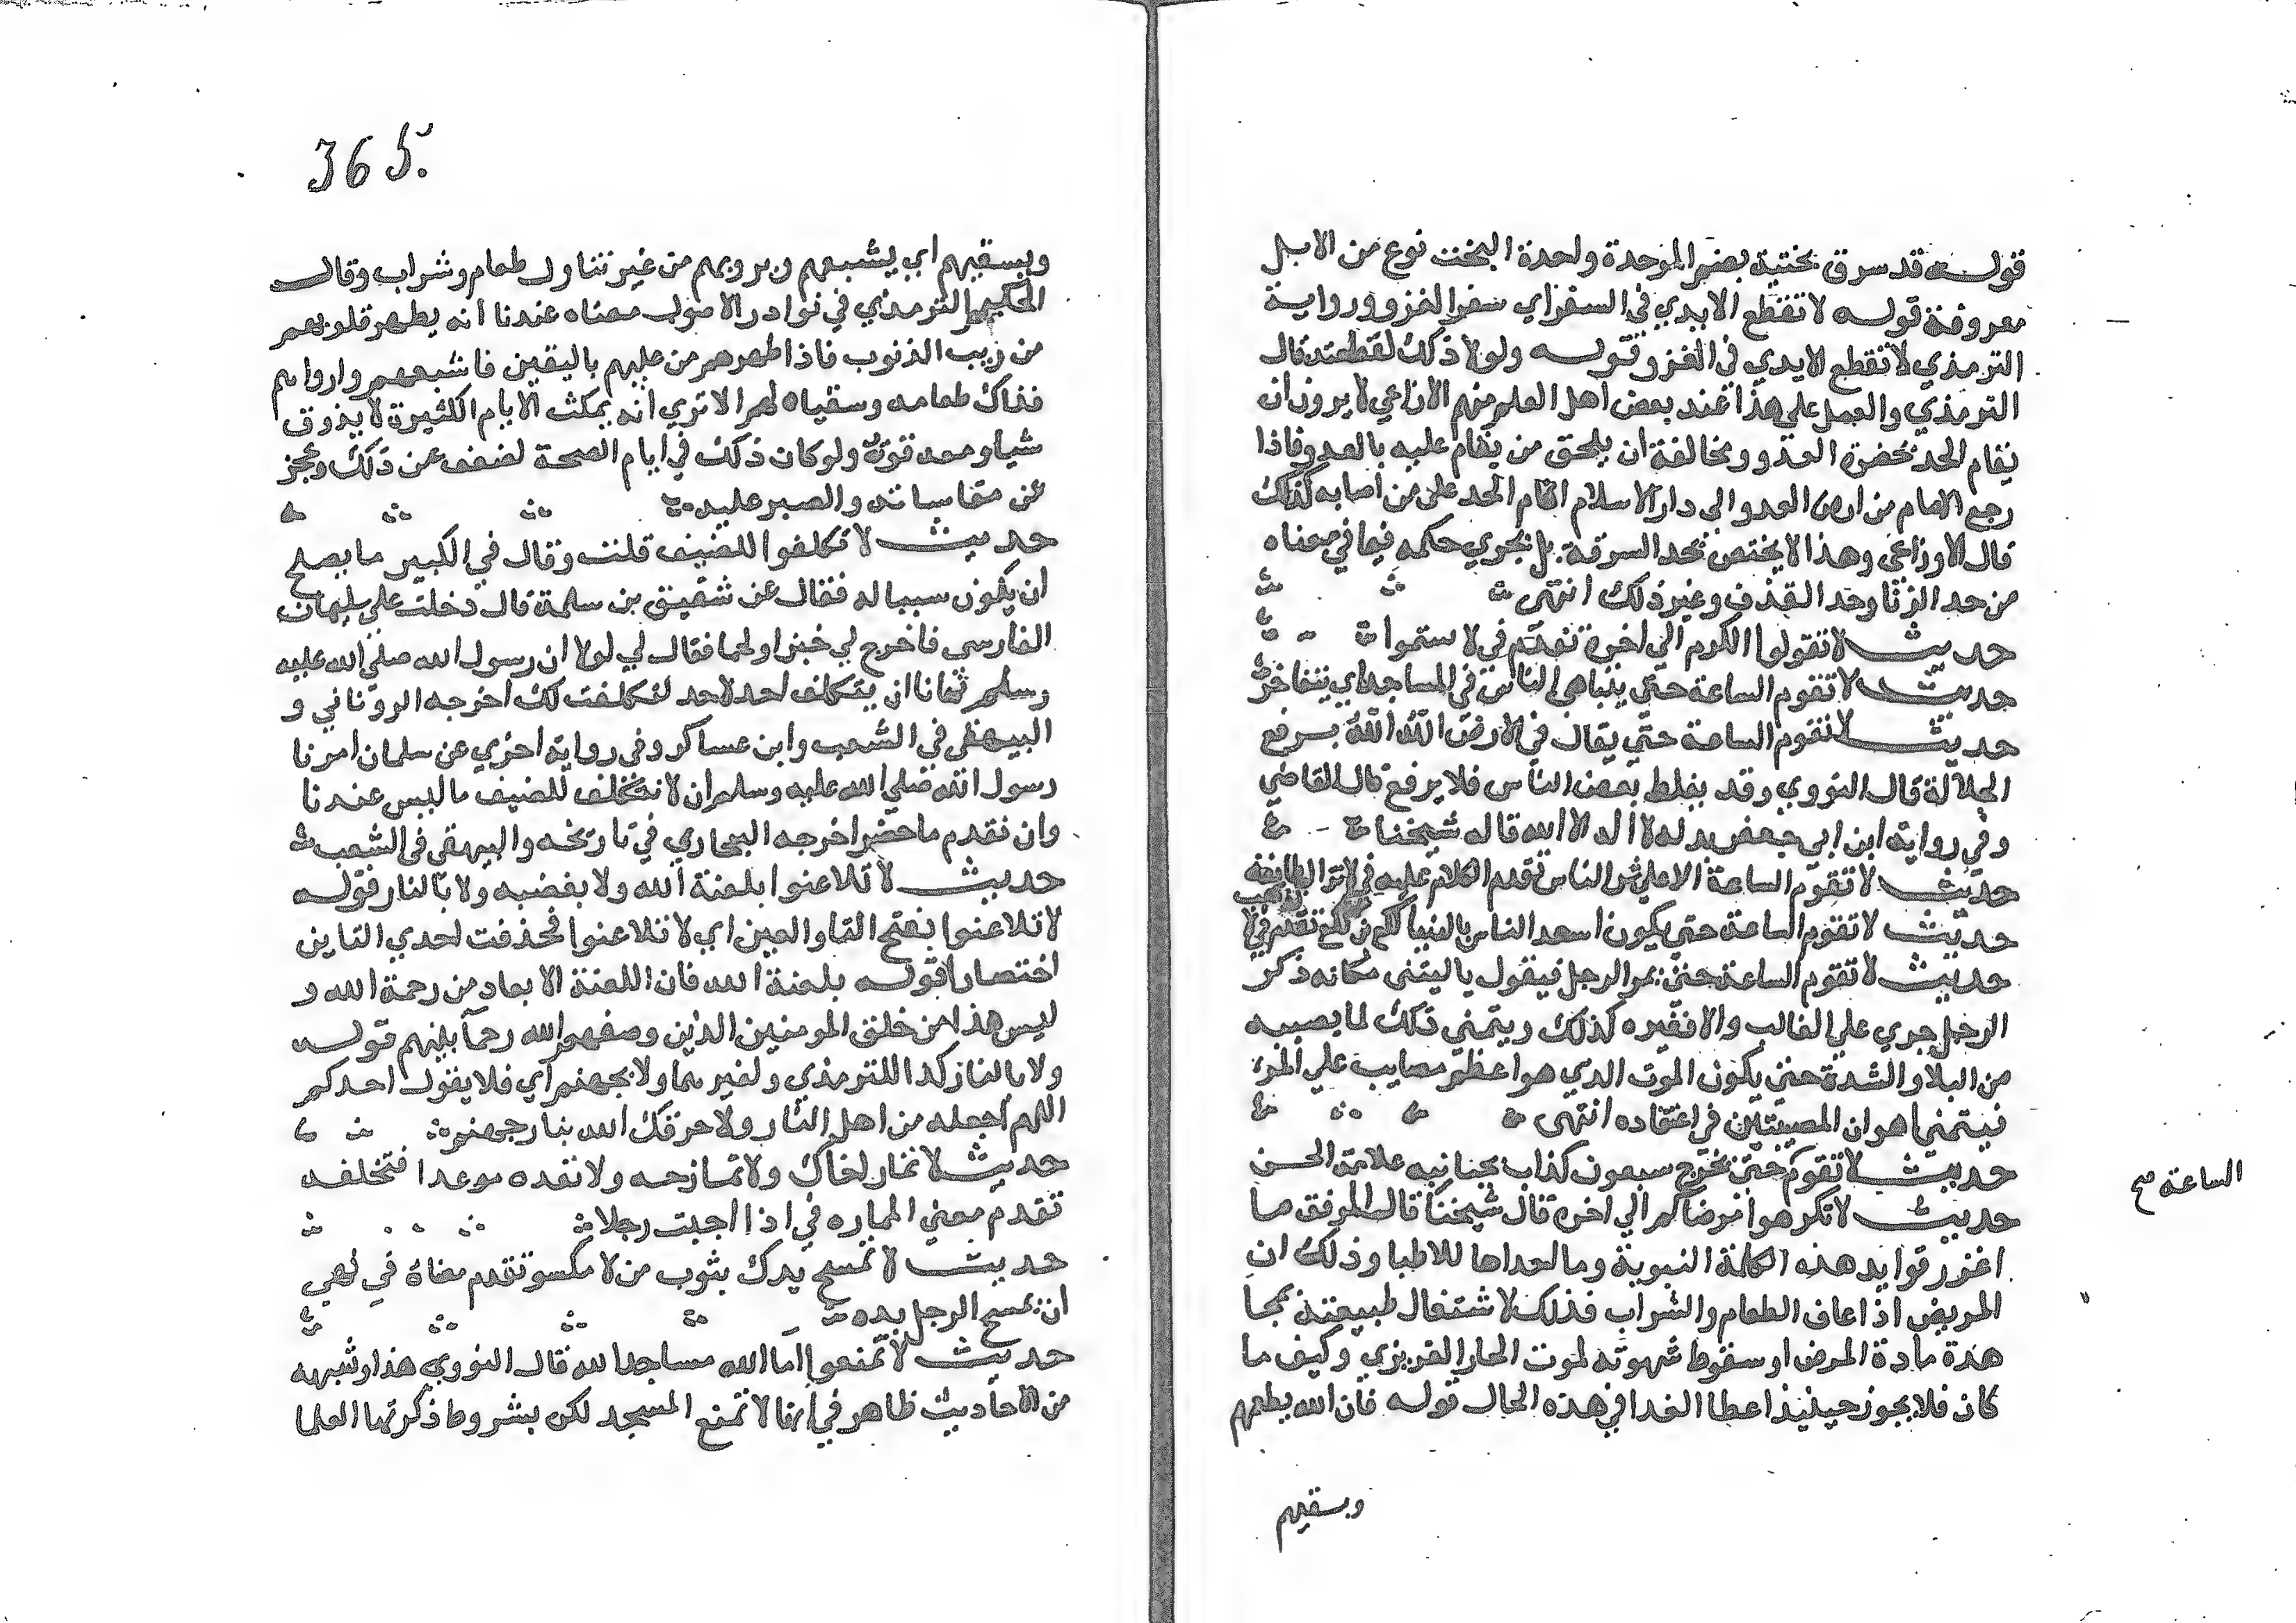 قولـه قد سرق بختية بضم الموحدة واحدة البخت نوع من الابل
معروفة قولـه لا تقطع الايدي في السفر اي سفر الغزو ورواية
الترمذي لا تقطع الايدي في الغزو قولـه ولولا ذلك لقطعته قال
الترمذي والعمل علي هذا عند بعض اهل العلم منهم الاوزاعي لا يرون ان
يقام الحد بحضرة العدو ومخالفة ان يلحق من يقام عليه بالعدو فاذا
رجع الامام من ارض العدو الى دار الاسلام اقام الحد على من اصابه كذلك
قال الاوزاعي وهذا لا يختص بحد السرقة بل يجري حكمه فيما في معناه
من حد الزنا وحد القذف وغير ذلك انتهى
حديث لا تقولوا الكرم الى اخره تقدم في لا تسموا
حديث لا تقوم الساعة حتى يتباهى الناس في المساجد اي يتفاخر
حديث لا تقوم الساعة حتى يقال في الارض الله الله برفع
الجلالة قال النووي وقد يغلط بعض الناس فلا يرفع قال القاضي
وفي رواية ابن ابي جعفر بدله لا اله الا الله قاله شيخنا
حديث لا تقوم الساعة الا على شر الناس تقدم الكلام عليه في لا تزال طايفة
حديث لا تقوم الساعة حتى يكون اسعد الناس بالدنيا لكع بن لكع تقدم في لا
تذهب
حديث لا تقوم الساعة حتى يمر الرجل فيقول ياليتنى مكانه ذكر
الرجل جري على الغالب والا فغيره كذلك ويتمنى ذلك لما يصيبه
من البلا والشدة حتى يكون الموت الذي هو اعظم مصايب على المرء
فيتمنى اهون المصيبتين في اعتقاده انتهى
حديث لا تقوم حتى يخرج سبعون كذاب بجانبه علامة الحسن
الساعة صح
حديث لا تكرهوا مرضاكم الى اخره قال شيخنا قال الموفق ما
اغزر فوايد هذه الكلمة النبوية وما لعداها للاطبا وذلك ان
المريض اذا عاف الطعام والشراب فذلك لاشتغال طبيعته بمجا
هدة مادة المرض او سقوط شهوته لموت الحار الغريزي وكيف ما
كان فلا يجوز حينيذ اعطا الغدا في هذه الحال قوله فان الله يطعمهم
ويسقيهم
365.
ويسقيهم اي يشبعهم ويرويهم من غير تناول طعام وشراب وقال
الحكيم الترمذي في نوادر الاصول معناه عندنا انه يطهر قلوبهم
من ريب الذنوب فاذا طهرهم من عليهم باليقين فاشبعهم وارواهم
فذاك طعامه وسقياه لهم الا تري انه يمكث الايام الكثيرة لا يذوق
شيا ومعه قوة ولو كان ذلك في ايام الصحة لضعف عن ذلك وعجز
عن مقاساته والصبر عليه
حديث لا تكلفوا للضيف قلت وقال في الكبير ما يصلح
ان يكون سببا له فقال عن شقيق بن سلمة قال دخلت على سلمان
الفارسي فاخرج لي خبزا ولحما فقال لي لولا ان رسول الله صلى الله عليه
وسلم نهانا ان يتكلف احد لاحد لتكلفت لك اخرجه الروياني و
البيهقي في الشعب وابن عساكر وفي رواية اخري عن سلمان امرنا
رسول الله صلى الله عليه وسلم ان لا نتكلف للضيف ما ليس عندنا
وان نقدم ما حضر اخرجه البخاري في تاريخه والبيهقي في الشعب
حديث لا تلاعنوا بلعنة الله ولا بغضبه ولا بالنار قولـه
لا تلاعنوا بفتح التا والعين اي لا تتلاعنوا فحذفت احدي التاين
اختصارا قولـه بلعنة الله فان اللعنة الابعاد من رحمة الله و
ليس هذا من خلق المومنين الذين وصفهم الله رحما بينهم قولـه
ولا بالنار كذا للترمذي ولغيرهما ولا بجهنم اي فلا يقول احدكم
اللهم اجعله من اهل النار ولا حرقك الله بنار جهنم
حديث لا تمار اخاك ولا تمازحه ولا تعده موعدا فتخلفه
تقدم معنى المماره في اذا احببت رجلا
حديث لا تمسح يدك بثوب من لا تكسو تقدم معناه في نهي
ان يمسح الرجل يده
حديث لا تمنعوا اما الله مساجد الله قال النووي هذا وشبهه
من الاحاديث ظاهر في انها لا تمنع المسجد لكن بشروط ذكرتها العلما